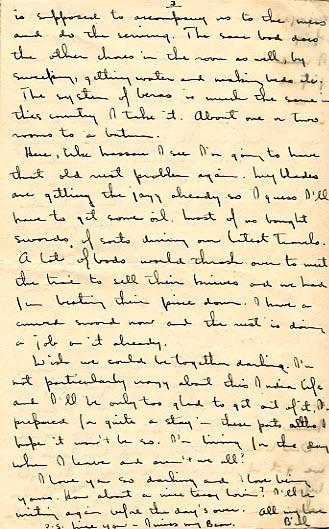 3
is supposed to accompany us to the mess
and do the serving. The same bod does
the other chores in the room as well, by
sweeping, getting water and making beds etc.
The system of bearers is much the same
this country I take it. About one or two
rooms to a
Here, like I see I'm going to have
that old rust problem again. My blades
are getting the already so I guess I'll
have to get some oil. Most of us bought
swords, of sorts during our latest travels.
A lot of bods would throng over to meet
the train to sell their knives and we had
fun beating their price down. I have a
curved sword now and the rust is doing
a job on it already.
Wish we could be together darling. I'm
not particularly crazy about this India life
and I'll be only too glad to get out of it. I'm
prepared for quite a stay in these parts altho I
hope it won't be so. I'm living for the day
when I leave and aren't we all?
I love you so darling and I love being
yours. How about a nice teasy? I'll be
writing again before the day's over. All my love
P.S. Love you - I miss my Bear. Bill